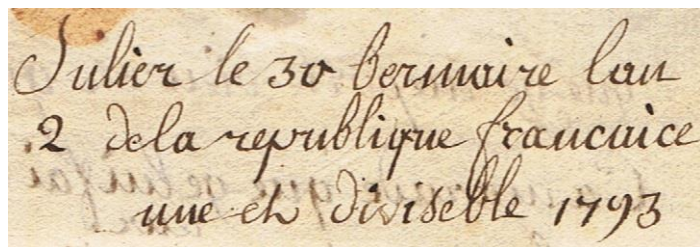 Julier le 30 bermaire lan
2 de la republique francaice
une et diviseble 1793